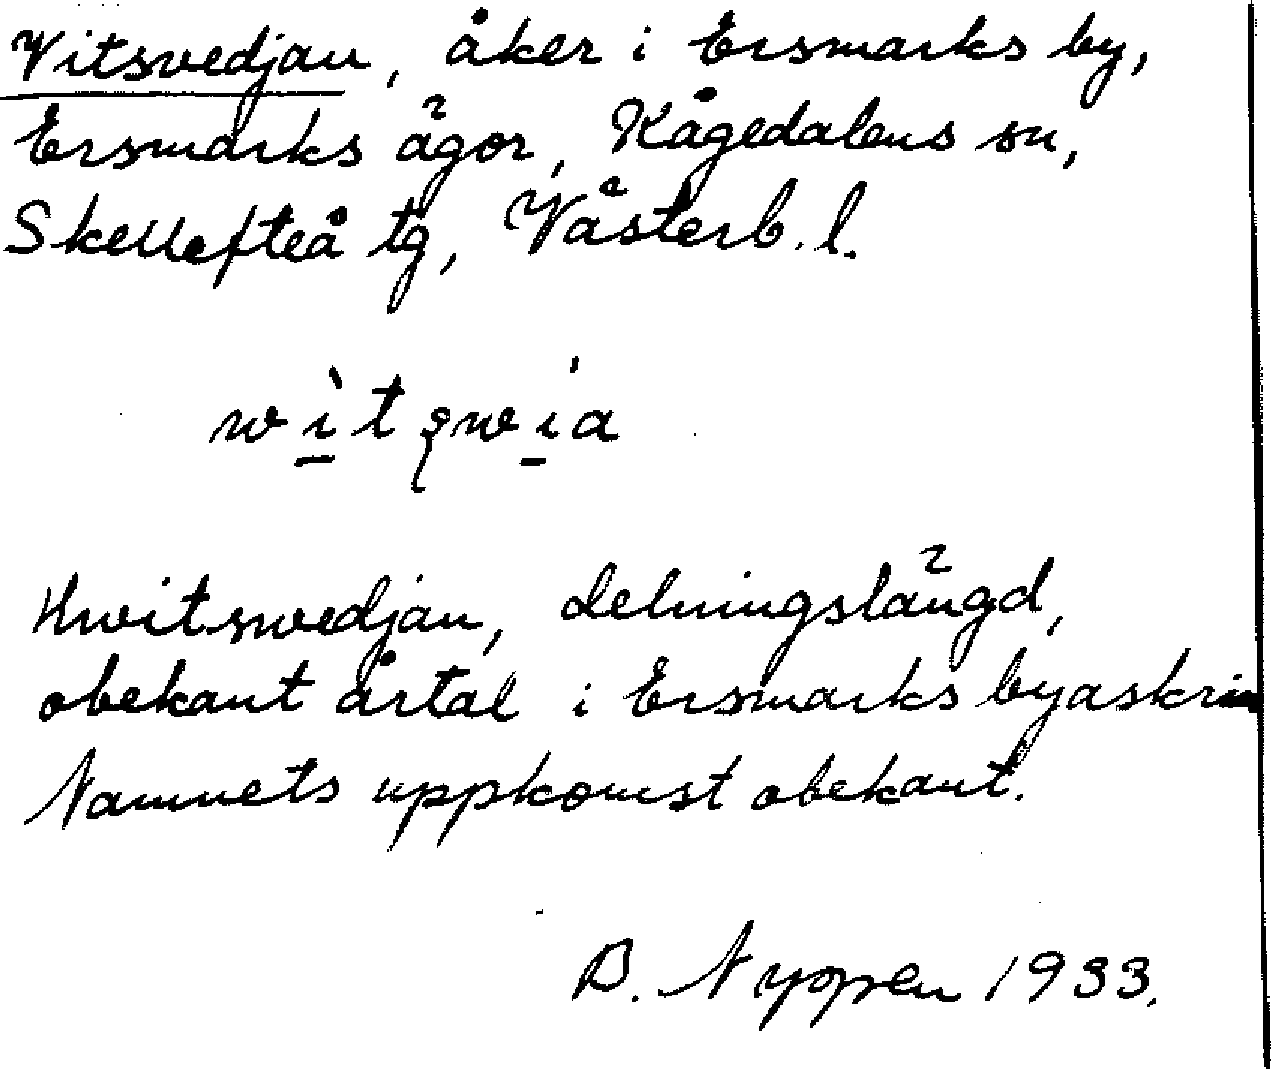 Vitsvedjan, åker i Ersmarks by,
Ersmarks ägor, Kågedalens sn,
Skellefteå tg, Västerb. l.
Hvitsvedjan, delningslängd,
obekant årtal i Ersmarks byaskrin
Namnets uppkomst obekant.
B. Nyppen 1933.